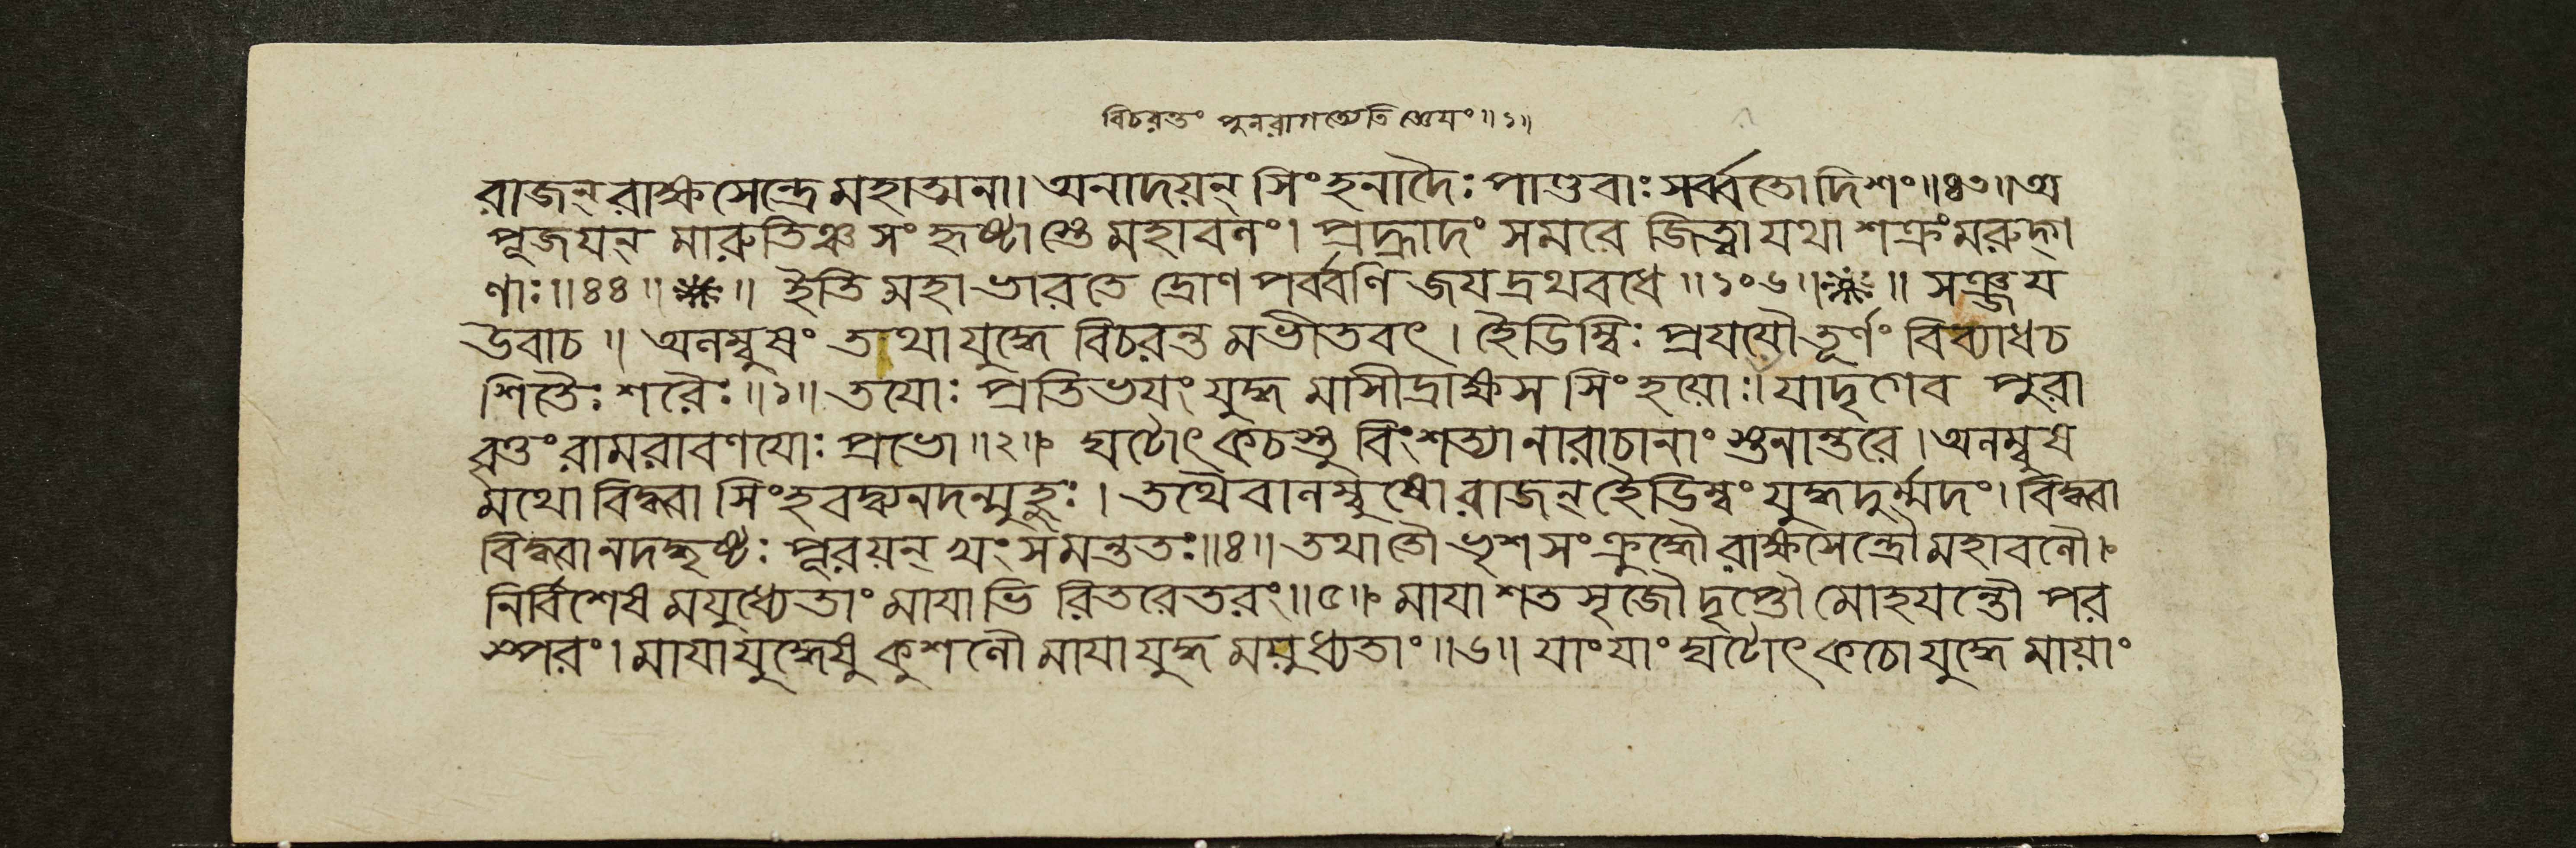 বিচরন্তং পুনরাগত্যেতি জ্ঞেয়ং॥১॥
রাজন্ রাক্ষসেন্দ্রে মহাত্মনা। অনাদয়ন্ সিংহনাদৈঃ পাণ্ডবাঃ সর্ব্বতোদিশং॥৪৩॥অ
পূজযন্ মারুতিঞ্চ সংহৃষ্টাস্তে মহাবলং। প্রহ্রাদং সমরে জিত্বা যথা শক্রং মরুদ্গ
ণাঃ॥৪৪॥ ॥ ইতি মহাভারতে দ্রোণপর্ব্বণি জযদ্রথবধে॥১০৬॥ ॥ সঞ্জয
উবাচ॥ অলম্বুষং তথা যুদ্ধে বিচরন্তমভীতবৎ। হৈডিম্বিঃ প্রযযৌ তূর্ণং বিব্যাধ চ
শিতৈঃ শরৈঃ॥১॥ তযোঃ প্রতিভযং যুদ্ধমাসীদ্রাক্ষসসিংহযোঃ। যাদৃগেব পুরা
বৃত্তং রামরাবণযোঃ প্রভো॥২॥ ঘটোৎকচস্তু বিংশত্যা নারাচানাং স্তনান্তরে। অলম্বুষ
মথো বিদ্ধ্বা সিংহবদ্ব্যনদন্মুহুঃ। তথৈবালম্বুষো রাজন্ হৈডিম্বং যুদ্ধদুর্ম্মদং। বিদ্ধ্বা
বিদ্ধ্বানদদ্ধৃষ্টঃ পূরয়ন্ খং সমন্ততঃ॥৪॥ তথা তৌ ভৃশসংক্রুদ্ধৌ রাক্ষসেন্দ্রৌ মহাবলৌ।
নির্বিশেষমযুধ্যেতাং মাযাভিরিতরেতরং॥৫॥ মাযাশতসৃজৌ দৃপ্তৌ মোহযন্তৌ পর
স্পরং। মাযাযুদ্ধেষু কুশলৌ মাযাযুদ্ধমযুধ্যতাং॥৬॥ যাং যাং ঘটোৎকচো যুদ্ধে মায়াং